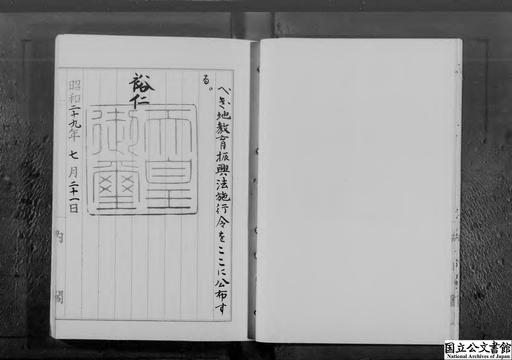 べき地教育振興法施行令をここに公布す
る。
裕仁
天皇
御璽
昭和二十九年七月二十一日
内閣
国立公文書館
National Archives of Japan